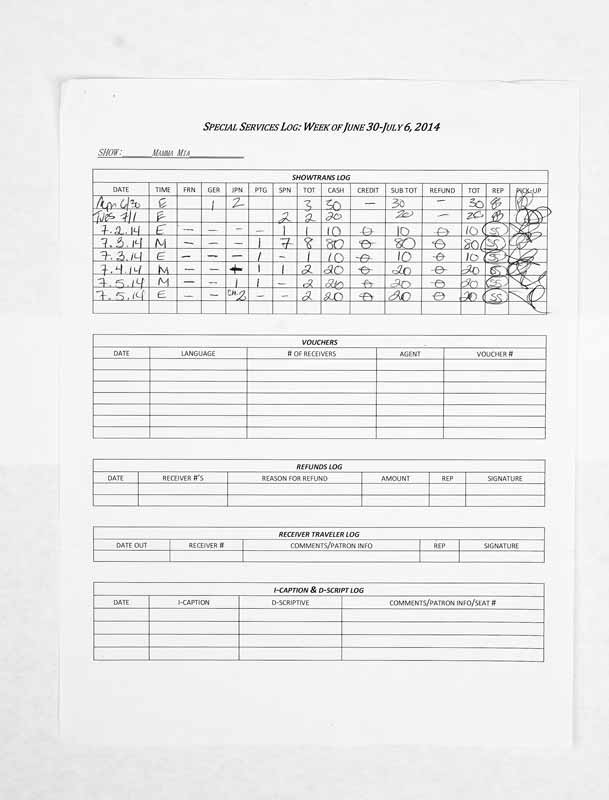 SPECIAL SERVICES LOG: WEEK OF JUNE 30-JULY 6, 2014
SHOW: MAMMA MIA
SHOWTRANS LOG
DATE TIME FRN GER JPN PTG SPN TOT CASH CREDIT SUB TOT REFUND TOT REP PICK-UP
6/30 E 1 2 3 30 — 30 — 30
Tues 7/1 E 2 2 20 20 — 20
7.2.14 E — — — — 1 1 10 0 10 0 10 SS
7.3.14 M — — — 1 7 8 80 0 80 0 80 SS
7.3.14 E — — — 1 - 1 10 0 10 0 10 SS
7.4.14 M — — 1 1 2 20 0 20 0 20
7.5.14 M — — 1 1 — 2 20 0 20 0 20 SS
7.5.14 E — — 2 — — 2 20 0 20 0 20 SS
VOUCHERS
DATE LANGUAGE # OF RECEIVERS AGENT VOUCHER #
REFUNDS LOG
DATE RECEIVER #'S REASON FOR REFUND AMOUNT REP SIGNATURE
RECEIVER TRAVELER LOG
DATE OUT RECEIVER # COMMENTS/PATRON INFO REP SIGNATURE
I-CAPTION & D-SCRIPT LOG
DATE I-CAPTION D-SCRIPTIVE COMMENTS/PATRON INFO/SEAT #